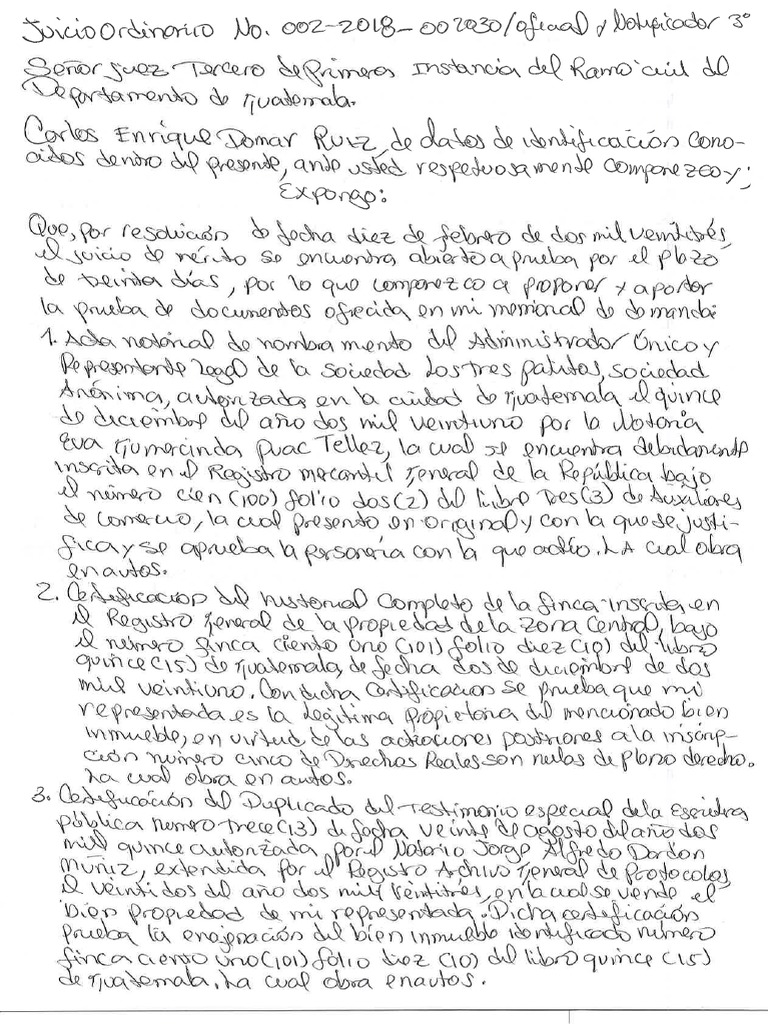 Juicio Ordinario No. 002-2018-002030/oficial y Notificador 3°
Señor Juez Tercero de Primera Instancia del Ramo civil del
Departamento de Guatemala.
Carlos Enrique Domar Ruiz, de datos de identificación cono-
cidos dentro del presente, ante usted respetuosamente comparezco y;
Expongo:
Que, por resolución de fecha diez de febrero de dos mil veintitrés,
el juicio de mérito se encuentra abierto a prueba por el plazo
de treinta días, por lo que comparezco a proponer y aportar
la prueba de documentos ofrecida en mi memorial de demanda:
1. Acta notarial de nombramiento del Administrador Único y
Representante Legal de la sociedad Los Tres patitos, sociedad
Anónima, autorizada en la ciudad de Guatemala el quince
de diciembre del año dos mil veintiuno por la Notaria
Eva Gumercinda Puac Tellez, la cual se encuentra debidamente
inscrita en el Registro mercantil General de la República bajo
el número cien (100) folio dos (2) del libro tres (3) de Auxiliares
de comercio, la cual presento en original y con la que se justi-
fica y se aprueba la personería con la que actúo. LA cual obra
en autos.
2. Certificación del historial Completo de la finca inscrita, en
el Registro General de la propiedad de la Zona Central, bajo
el número finca ciento uno (101) folio diez (10) del libro
quince (15) de Guatemala, de fecha dos de diciembre de dos
mil veintiuno. Con dicha certificación se prueba que mi
representada es la legítima propietaria del mencionado bien
inmueble, en virtud de las actuaciones posteriores a la inscrip-
ción número cinco de Derechos Reales son nulas de pleno derecho.
La cual obra en autos.
3. Certificación del Duplicado del Testimonio especial de la Escritura
pública número trece (13) de fecha veinte de agosto del año dos
mil quince autorizada por el Notario Jorge Alfredo Dardon
Muñiz, extendida por el Registro Archivo General de Protocolos,
el veintidos del año dos mil veintitres, en la cual se vende el
bien propiedad de mi representada. Dicha certificación
prueba la enajenación del bien inmueble identificado número
finca ciento uno (101) folio diez (10) del libro quince (15)
de Guatemala. La cual obra en autos.